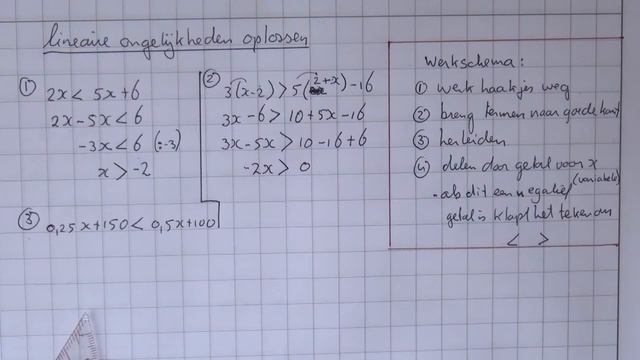 lineaire ongelijkheden oplossen
① 2x < 5x+6
2x-5x < 6
-3x < 6 (:-3)
x > -2
② 3(x-2) > 5(2+x)-16
3x-6 > 10+5x-16
3x-5x > 10-16+6
-2x > 0
③ 0,25x+150 < 0,5x+100
Werkschema:
① werk haakjes weg
② breng termen naar goede kant
③ herleiden
④ delen door getal voor x
(variabele)
- als dit een negatief
getal is klapt het teken om
< >